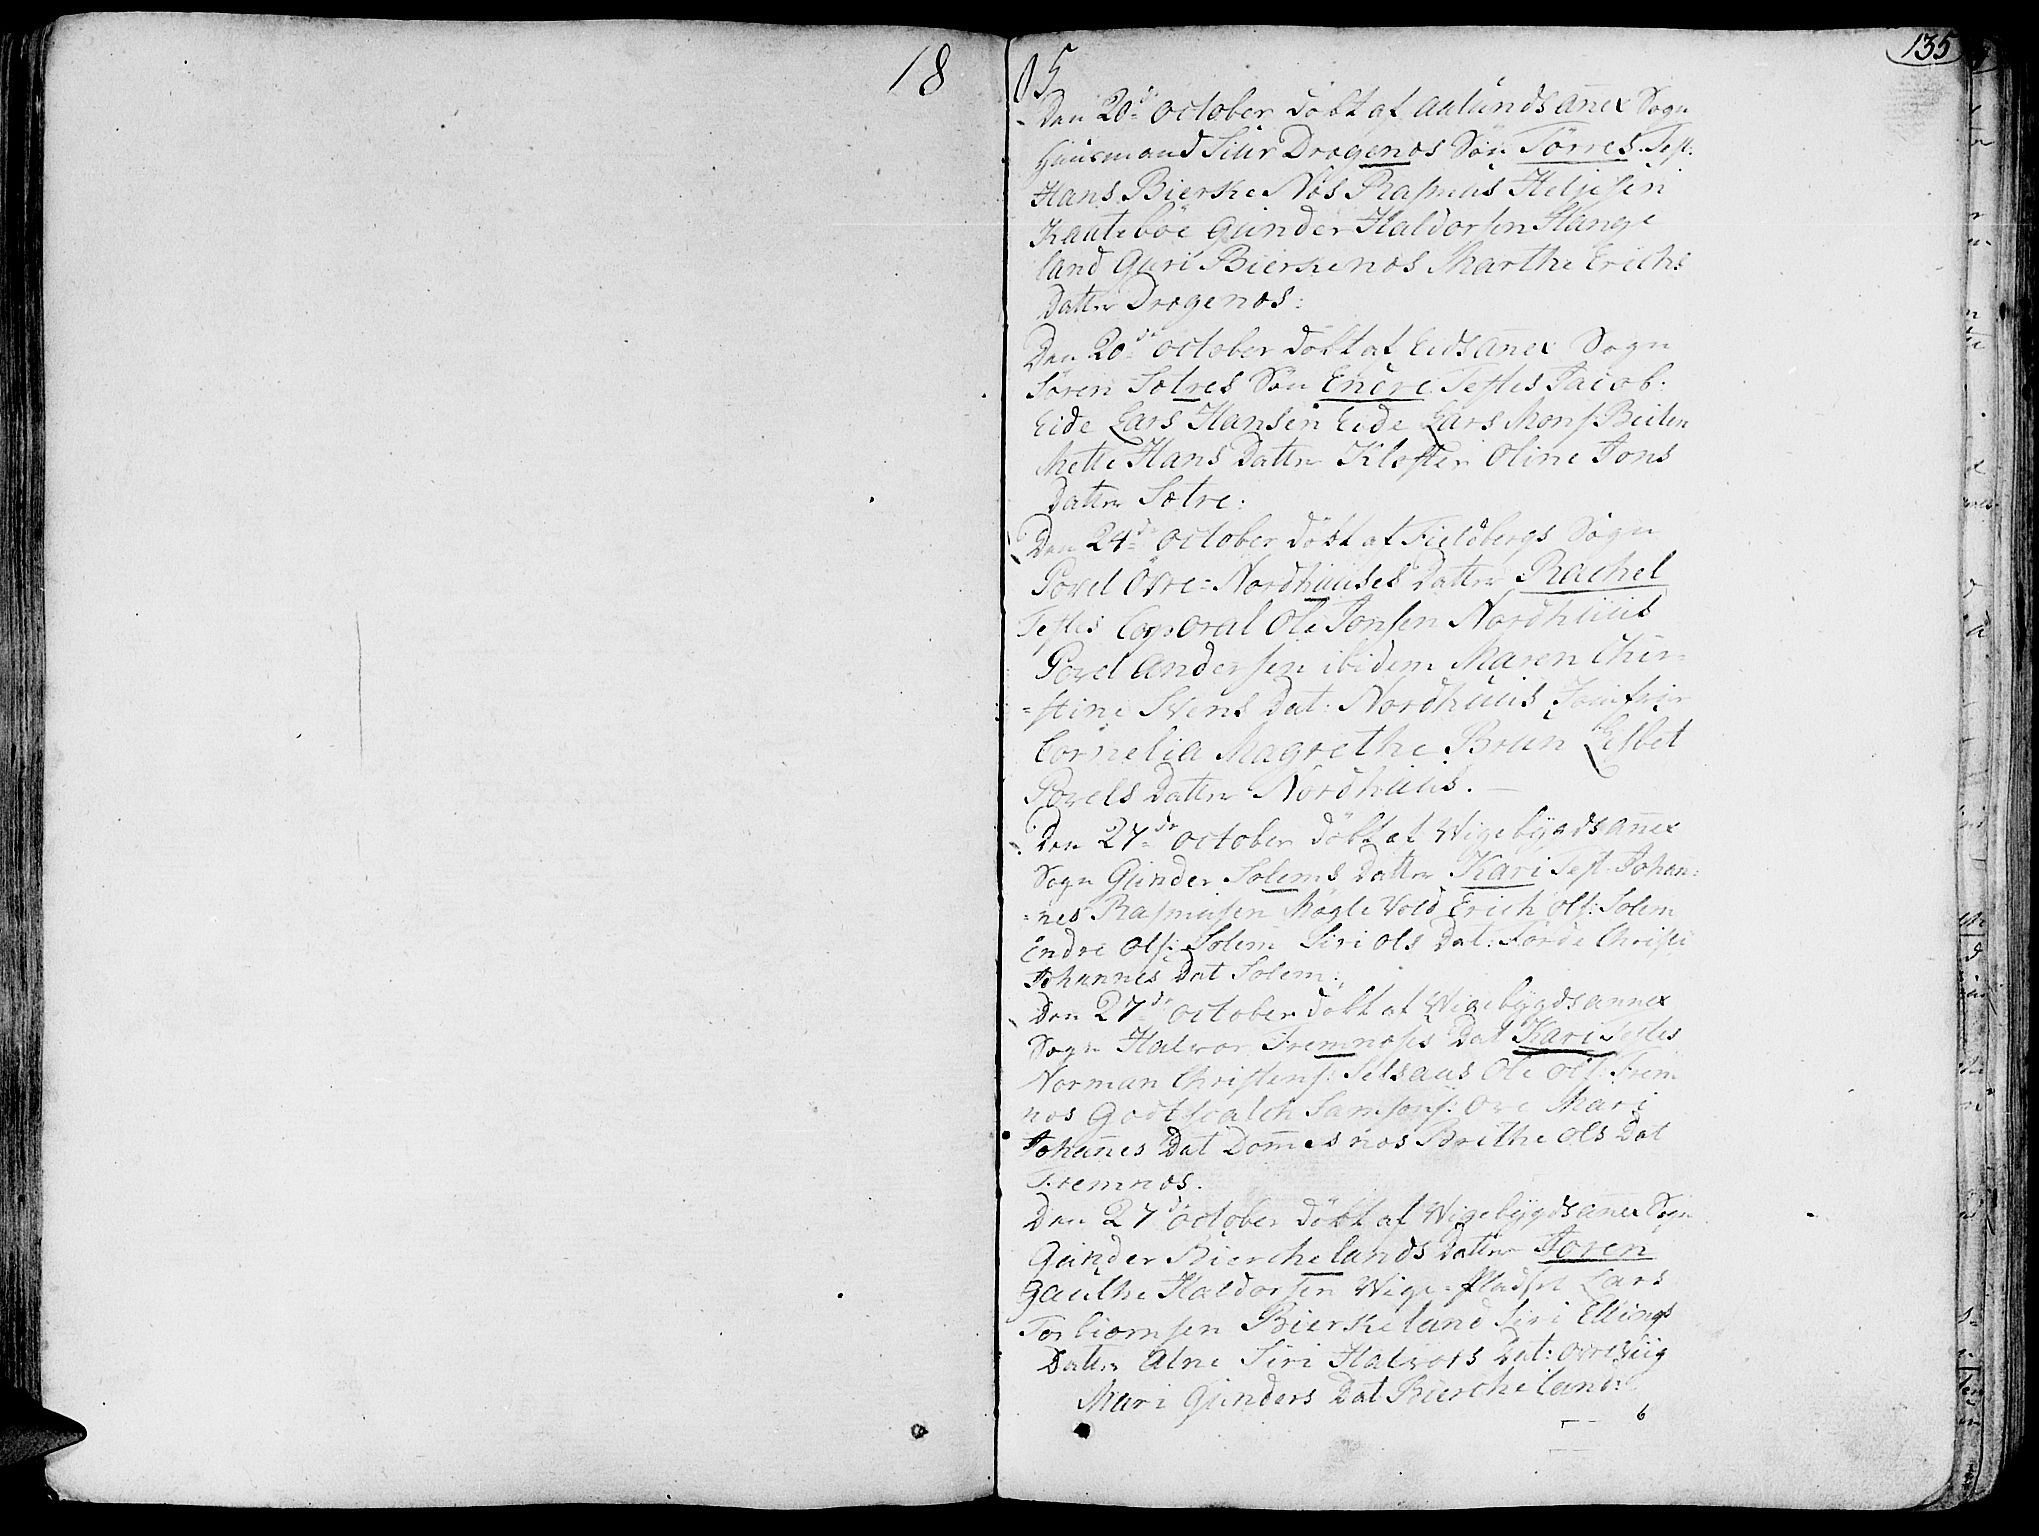 18
05
135
Den 20de October döbt af aalunds añex Sogn
Huusmand Siur Dragenøs Sön Törres. Test:
Hans Bierke Nøs Rasmus Heljesen
Kauteböe Gunder Haldorsen Stange
land Guri Bierkenøs Marthe Erichs
Datter Drøgenøs:
Den 20de October döbt af Eids añex Sogn
Sören Sætres Sön Endre Testes Jacob
Eide Lars Hansen Eide Lars Mons:
Mette Hans Datter Kloster Oline Jons
Datter Sætre:
Den 24de October döbt af Fieldbergs Sogn
Povel Övre=Nordhuuses Datter Rachel
Testes Corporal Ole Jonsen Nordhuus
Povel Andersen ibidem Maren Chir=
=stine Svens Dat: Nordhuus Jomfrue
Cornelia Magrethe Brun Lisbet
Povels Datter Nordhuus.
Den 27de October döbt af Wigebygds añex
Sogn Gunder Solems Datter Kari Test. Johan=
=nes Rasmusen Møgle Vold Erich Ols: Solem
Endre Ols: Solem Siri Ols Dat: Förde Christi
Johannes Dat Solem:
Den 27de October döbt af Wigebygds annex
Sogn Halvor Fremnøses Dat Kari Testes
Norman Christens: Selsaas Ole Ols: Frem
nøs Godtscalch Samsons: Ove Mari
Johañes Dat Dom̃esnøs Brithe Ols Dat
Fremnøs.
Den 27de October döbt af Wigebygds añex Sogn
Gunder Bierchelands Datter Joren
Gauthe Haldorsen Wige=Pladset Lars
Torbiørnsen Bierkeland Siri Ellings
Datter Alne Siri Halvors Dat: Ovreviig
Mari Gunders Dat Biercheland:
6